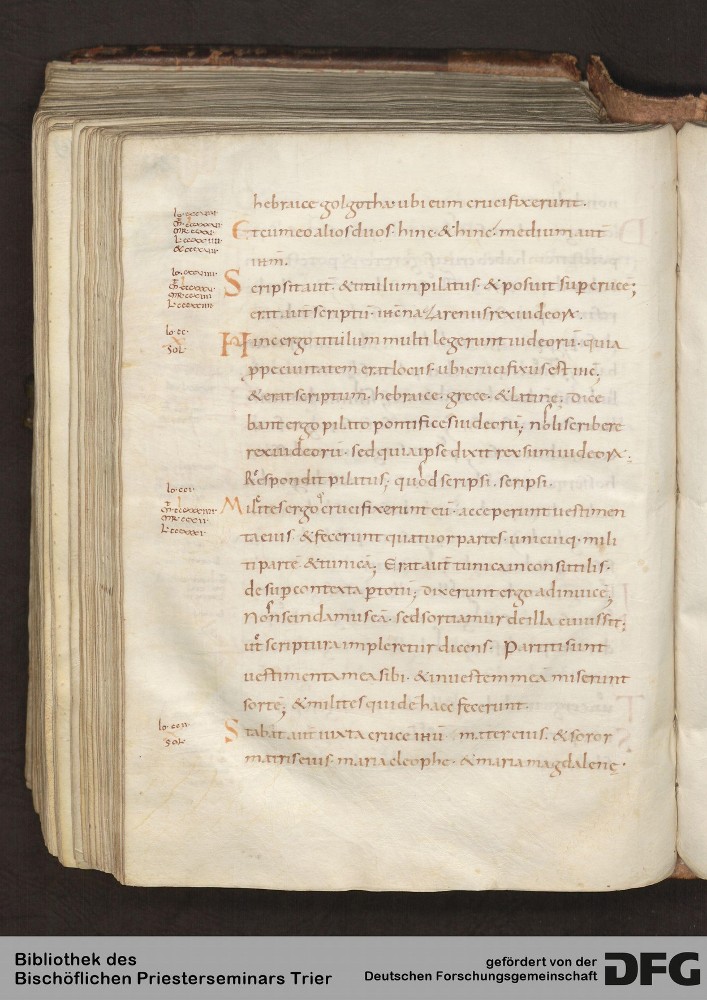 hebraice golgotha ubi eum crucifixerunt.
Et cum eo alios duos. hinc & hinc. medium aut̄
ihm̄.
Scripsit aut̄. & titulum pilatus. & posuit sup̄ crucē;
erat aut̄ scriptū. ihc̄ nazarenus rex iudeorꝝ.
Hunc ergo titulum multi legerunt iudeorū. quia
ꝓpe ciuitatem erat locus. ubi crucifixus est ihc̄;
& erat scriptum. hebraice. grece. & latine; Dice
bant ergo pilato pontifices iudeorū; noli scribere
rex iudeorū. sed quia ipse dixit rex sum iudeorꝝ;
Respondit pilatus; quod scripsi. scripsi.
Milites ergo cū crucifixerunt eū. acceperunt uestimen
ta eius. & fecerunt quatuor partes. unicuiq. mili
ti partē. & tunicā; Erat aut̄ tunica inconsutilis.
desup̄ contexta ꝑ totū; dixerunt ergo adinuicē;
Non scindamus eā. sed sortiamur de illa cuius sit;
ut scriptura impleretur dicens. Partiti sunt
uestimenta mea sibi. & in uestem meā miserunt
sortē; & milites quidē haec fecerunt.
Io. ccii.
sol
Stabat aut̄ iuxta crucē ihū mater eius. & soror
matris eius. maria cleophe. & maria magdalene.
Bibliothek des
Bischöflichen Priesterseminars Trier
gefördert von der
Deutschen Forschungsgemeinschaft
DFG